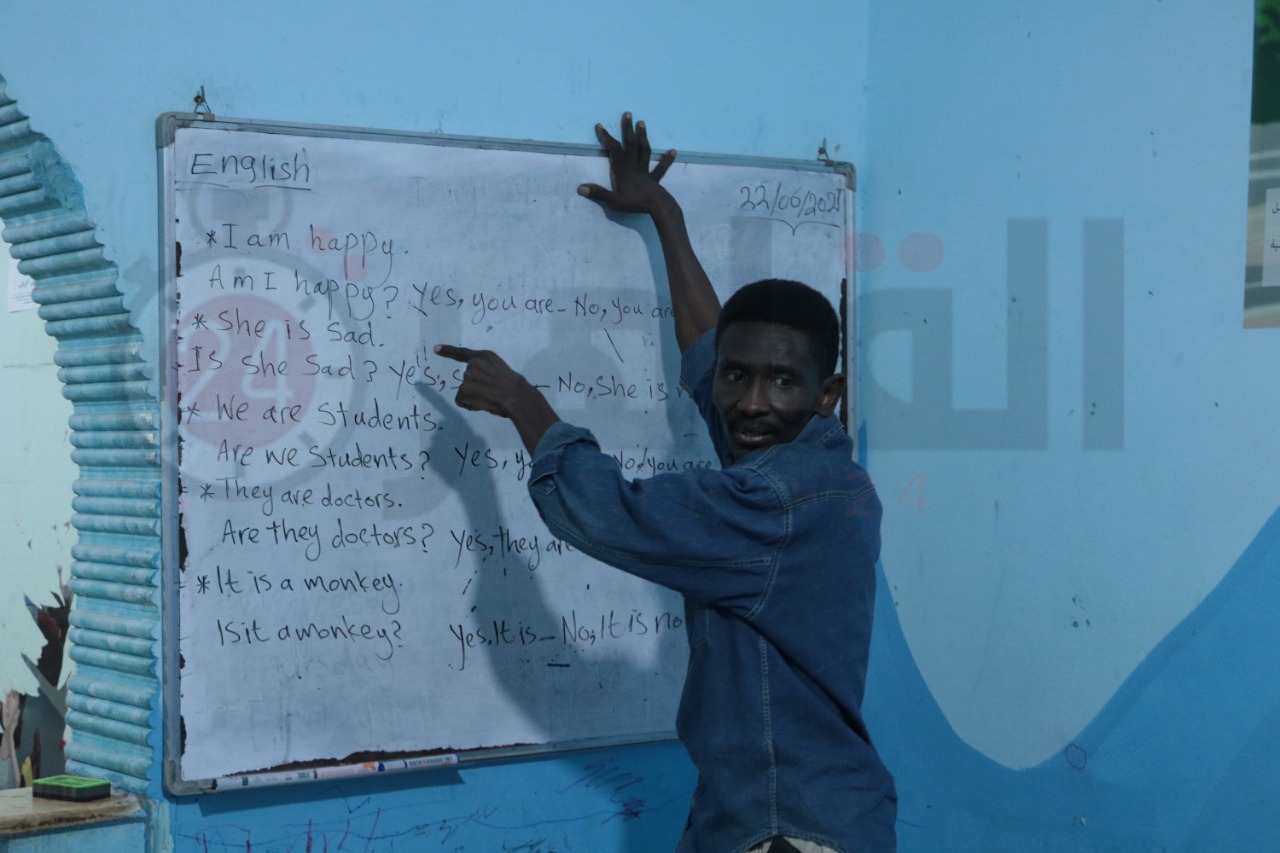 English
22/06/2021
*I am happy.
Am I happy? Yes, you are - No, you are
* She is sad.
Is She Sad? Yes, - No, She is
* We are Students.
Are we Students? Yes, No, you are
* They are doctors.
Are they doctors? Yes, they are
* It is a monkey.
Is it a monkey? Yes. It is - No, It is no
القاهرة
24